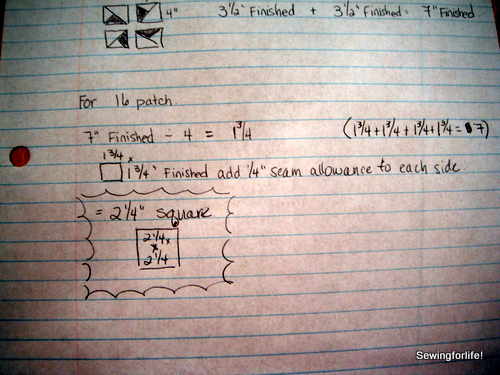 4" 3 1/2" Finished + 3 1/2" Finished = 7" Finished
For 16 patch
7" Finished ÷ 4 = 1 3/4 (1 3/4 + 1 3/4 + 1 3/4 + 1 3/4 = 7)
1 3/4 x
1 3/4" Finished add 1/4" seam allowance to each side.
= 2 1/4" square
2 1/4 x
x
2 1/4
Sewingforlife!